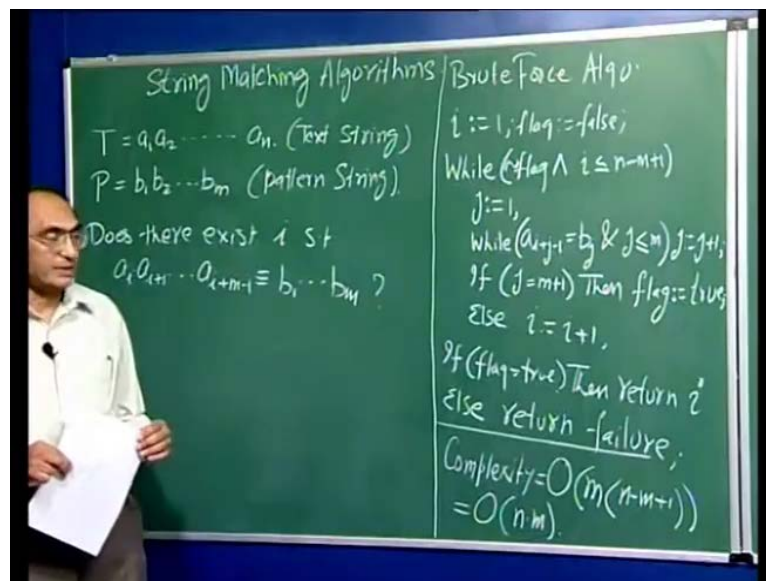 String Matching Algorithms
T = a₁a₂ ...... aₙ. (Text String)
P = b₁b₂ ... bₘ (pattern String).
Does there exist i st
aᵢaᵢ₊₁ ... aᵢ₊ₘ₋₁ ≡ b₁ ... bₘ ?
Brute Force Algo.
i := 1; flag := false;
While (~flag ∧ i ≤ n-m+1)
j := 1,
while (aᵢ₊ⱼ₋₁ = bⱼ & j ≤ m) j := j+1;
If (j = m+1) Then flag := true;
Else i := i+1,
If (flag = true) Then return i
Else return failure;
Complexity = O(m(n-m+1))
= O(n·m).